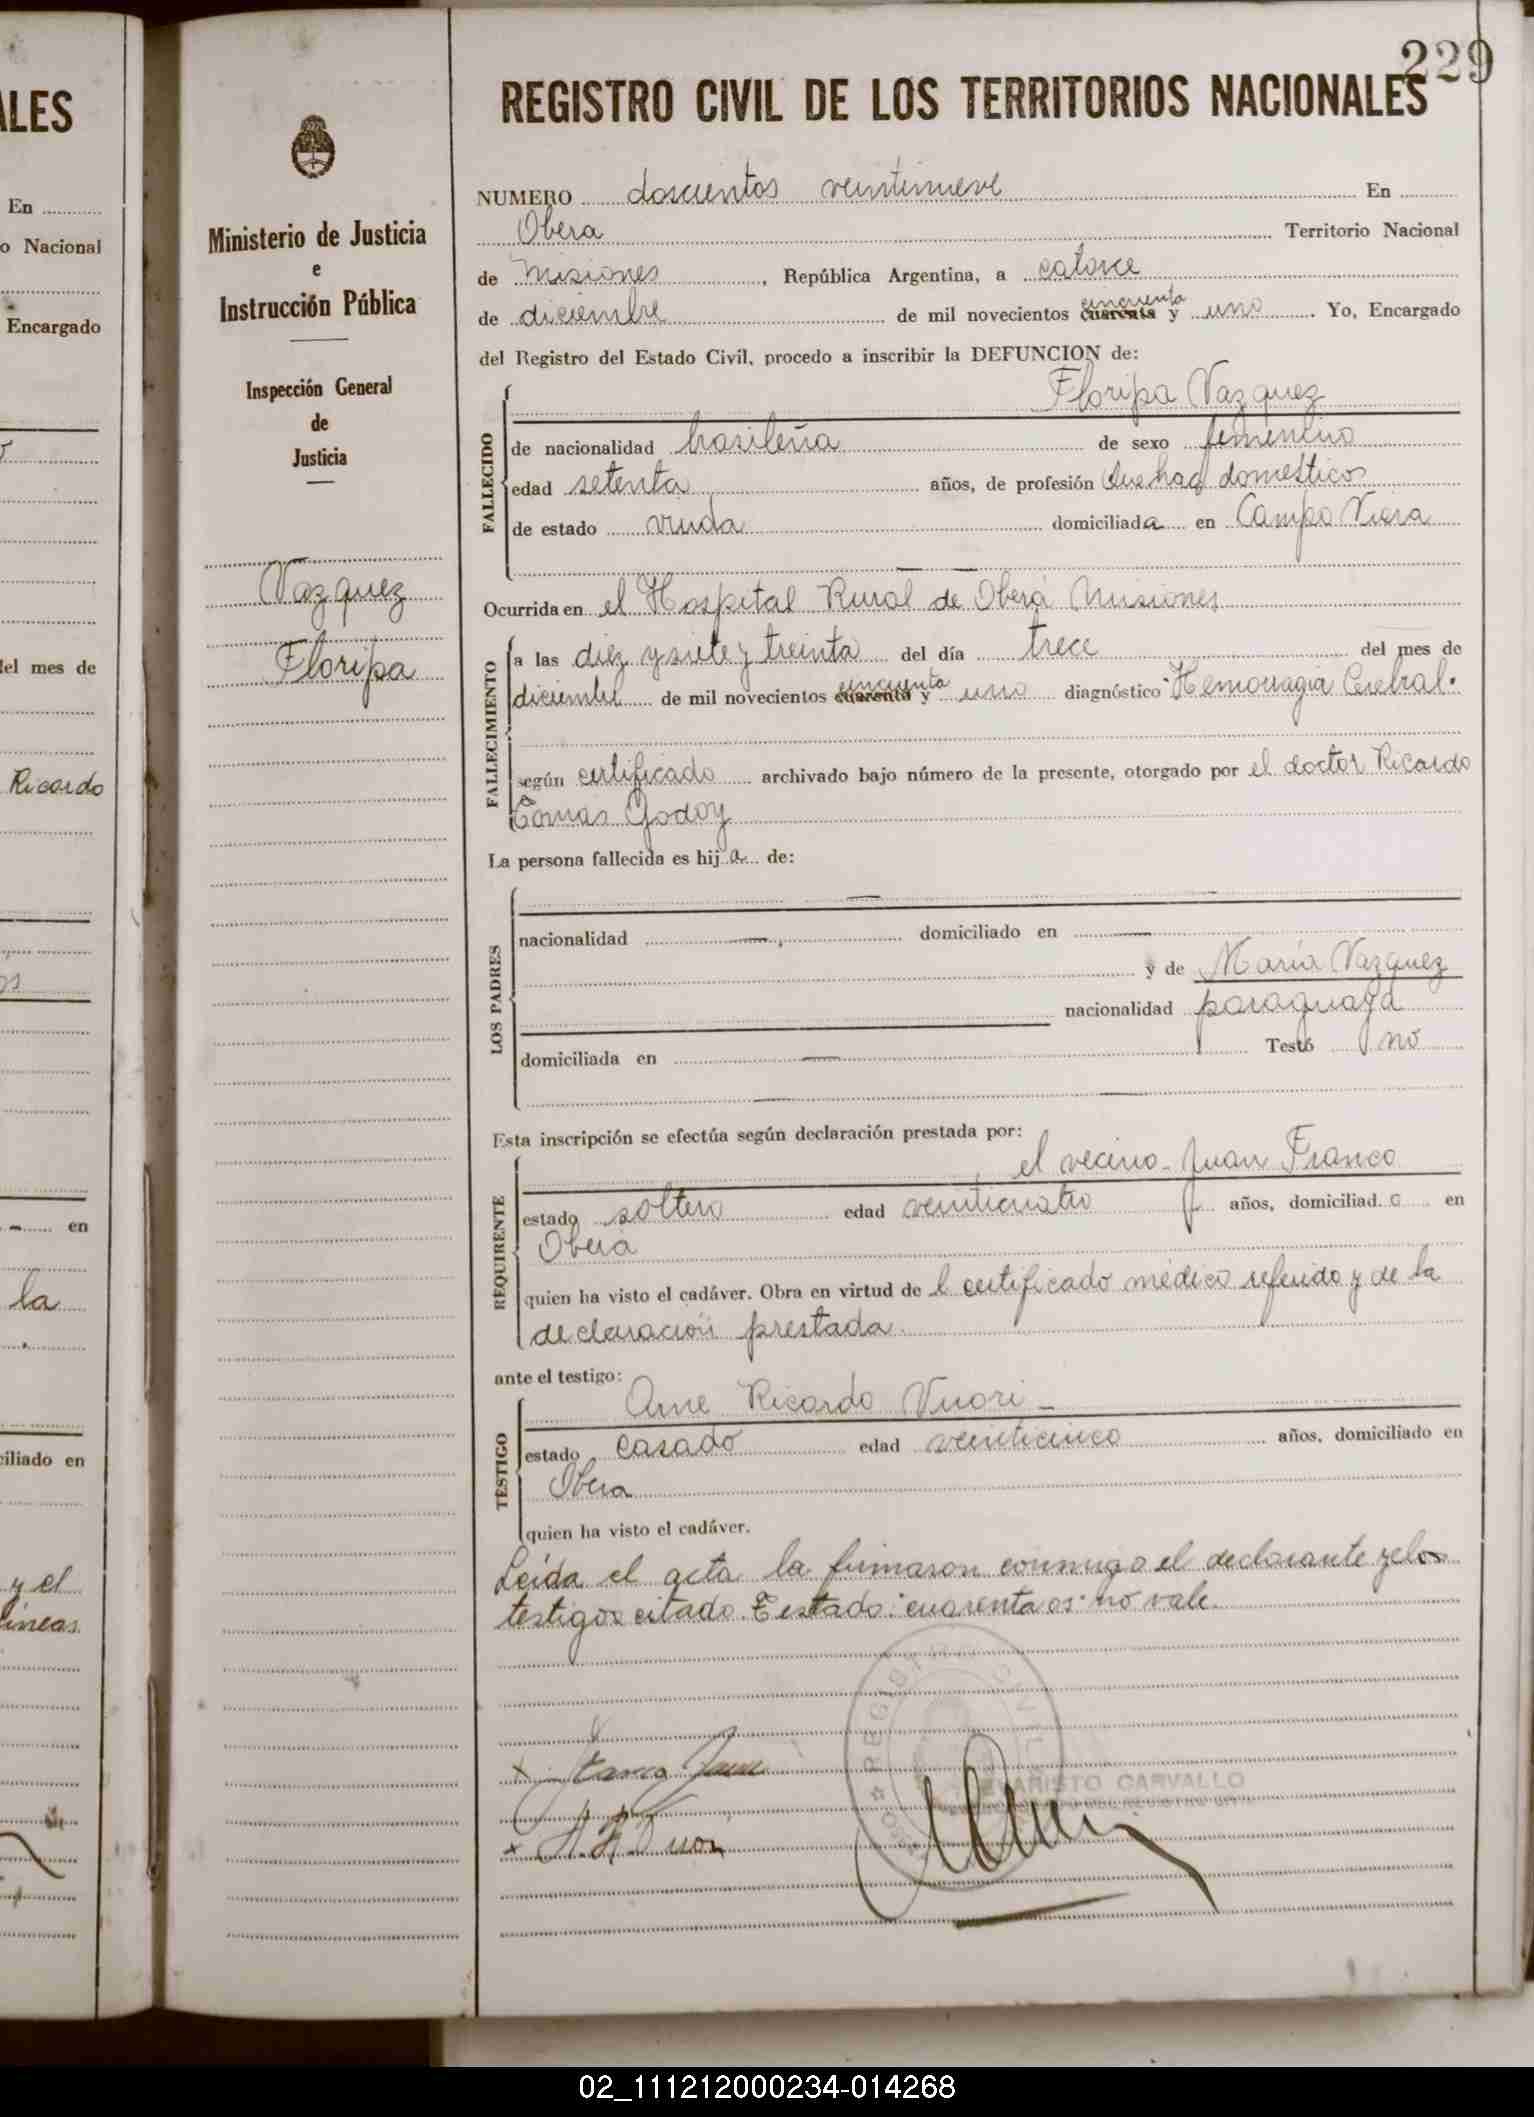 229
REGISTRO CIVIL DE LOS TERRITORIOS NACIONALES
NUMERO doscientos veintinueve En
Obera Territorio Nacional
de Misiones, República Argentina, a catorce
de diciembre de mil novecientos cuarenta cincuenta y uno. Yo, Encargado
del Registro del Estado Civil, procedo a inscribir la DEFUNCION de:
Floripa Vazquez
FALLECIDO
de nacionalidad brasileña de sexo femenino
edad setenta años, de profesión quehac domesticos
de estado viuda domiciliada en Campo Viera
Ocurrida en el Hospital Rural de Oberá Misiones
FALLECIMIENTO
a las diez y siete y treinta del día trece del mes de
diciembre de mil novecientos cuarenta cincuenta y uno diagnóstico Hemorragia Cerebral.
según certificado archivado bajo número de la presente, otorgado por el doctor Ricardo
Tomas Godoy
La persona fallecida es hija de:
LOS PADRES
nacionalidad domiciliado en
y de María Vazquez
nacionalidad paraguaya
domiciliada en Testó no
Esta inscripción se efectúa según declaración prestada por:
el vecino - Juan Franco
REQUIRENTE
estado soltero edad veinticuatro años, domiciliado en
Oberá
quien ha visto el cadáver. Obra en virtud del certificado médico referido y de la
declaración prestada.
ante el testigo:
Arne Ricardo Vuori -
TESTIGO
estado casado edad veinticinco años, domiciliado en
Obera
quien ha visto el cadáver.
Leída el acta la firmaron conmigo el declarante y los
testigos citado. Testado: "cuarenta os" no vale.
Franco Juan
A. R. Vuori
REGISTRO CIVIL
EVARISTO CARVALLO
Ministerio de Justicia
e
Instrucción Pública
Inspección General
de
Justicia
Vazquez
Floripa
ALES
En
o Nacional
Encargado
del mes de
Ricardo
en
la
ciliado en
y el
lineas
02_111212000234-014268